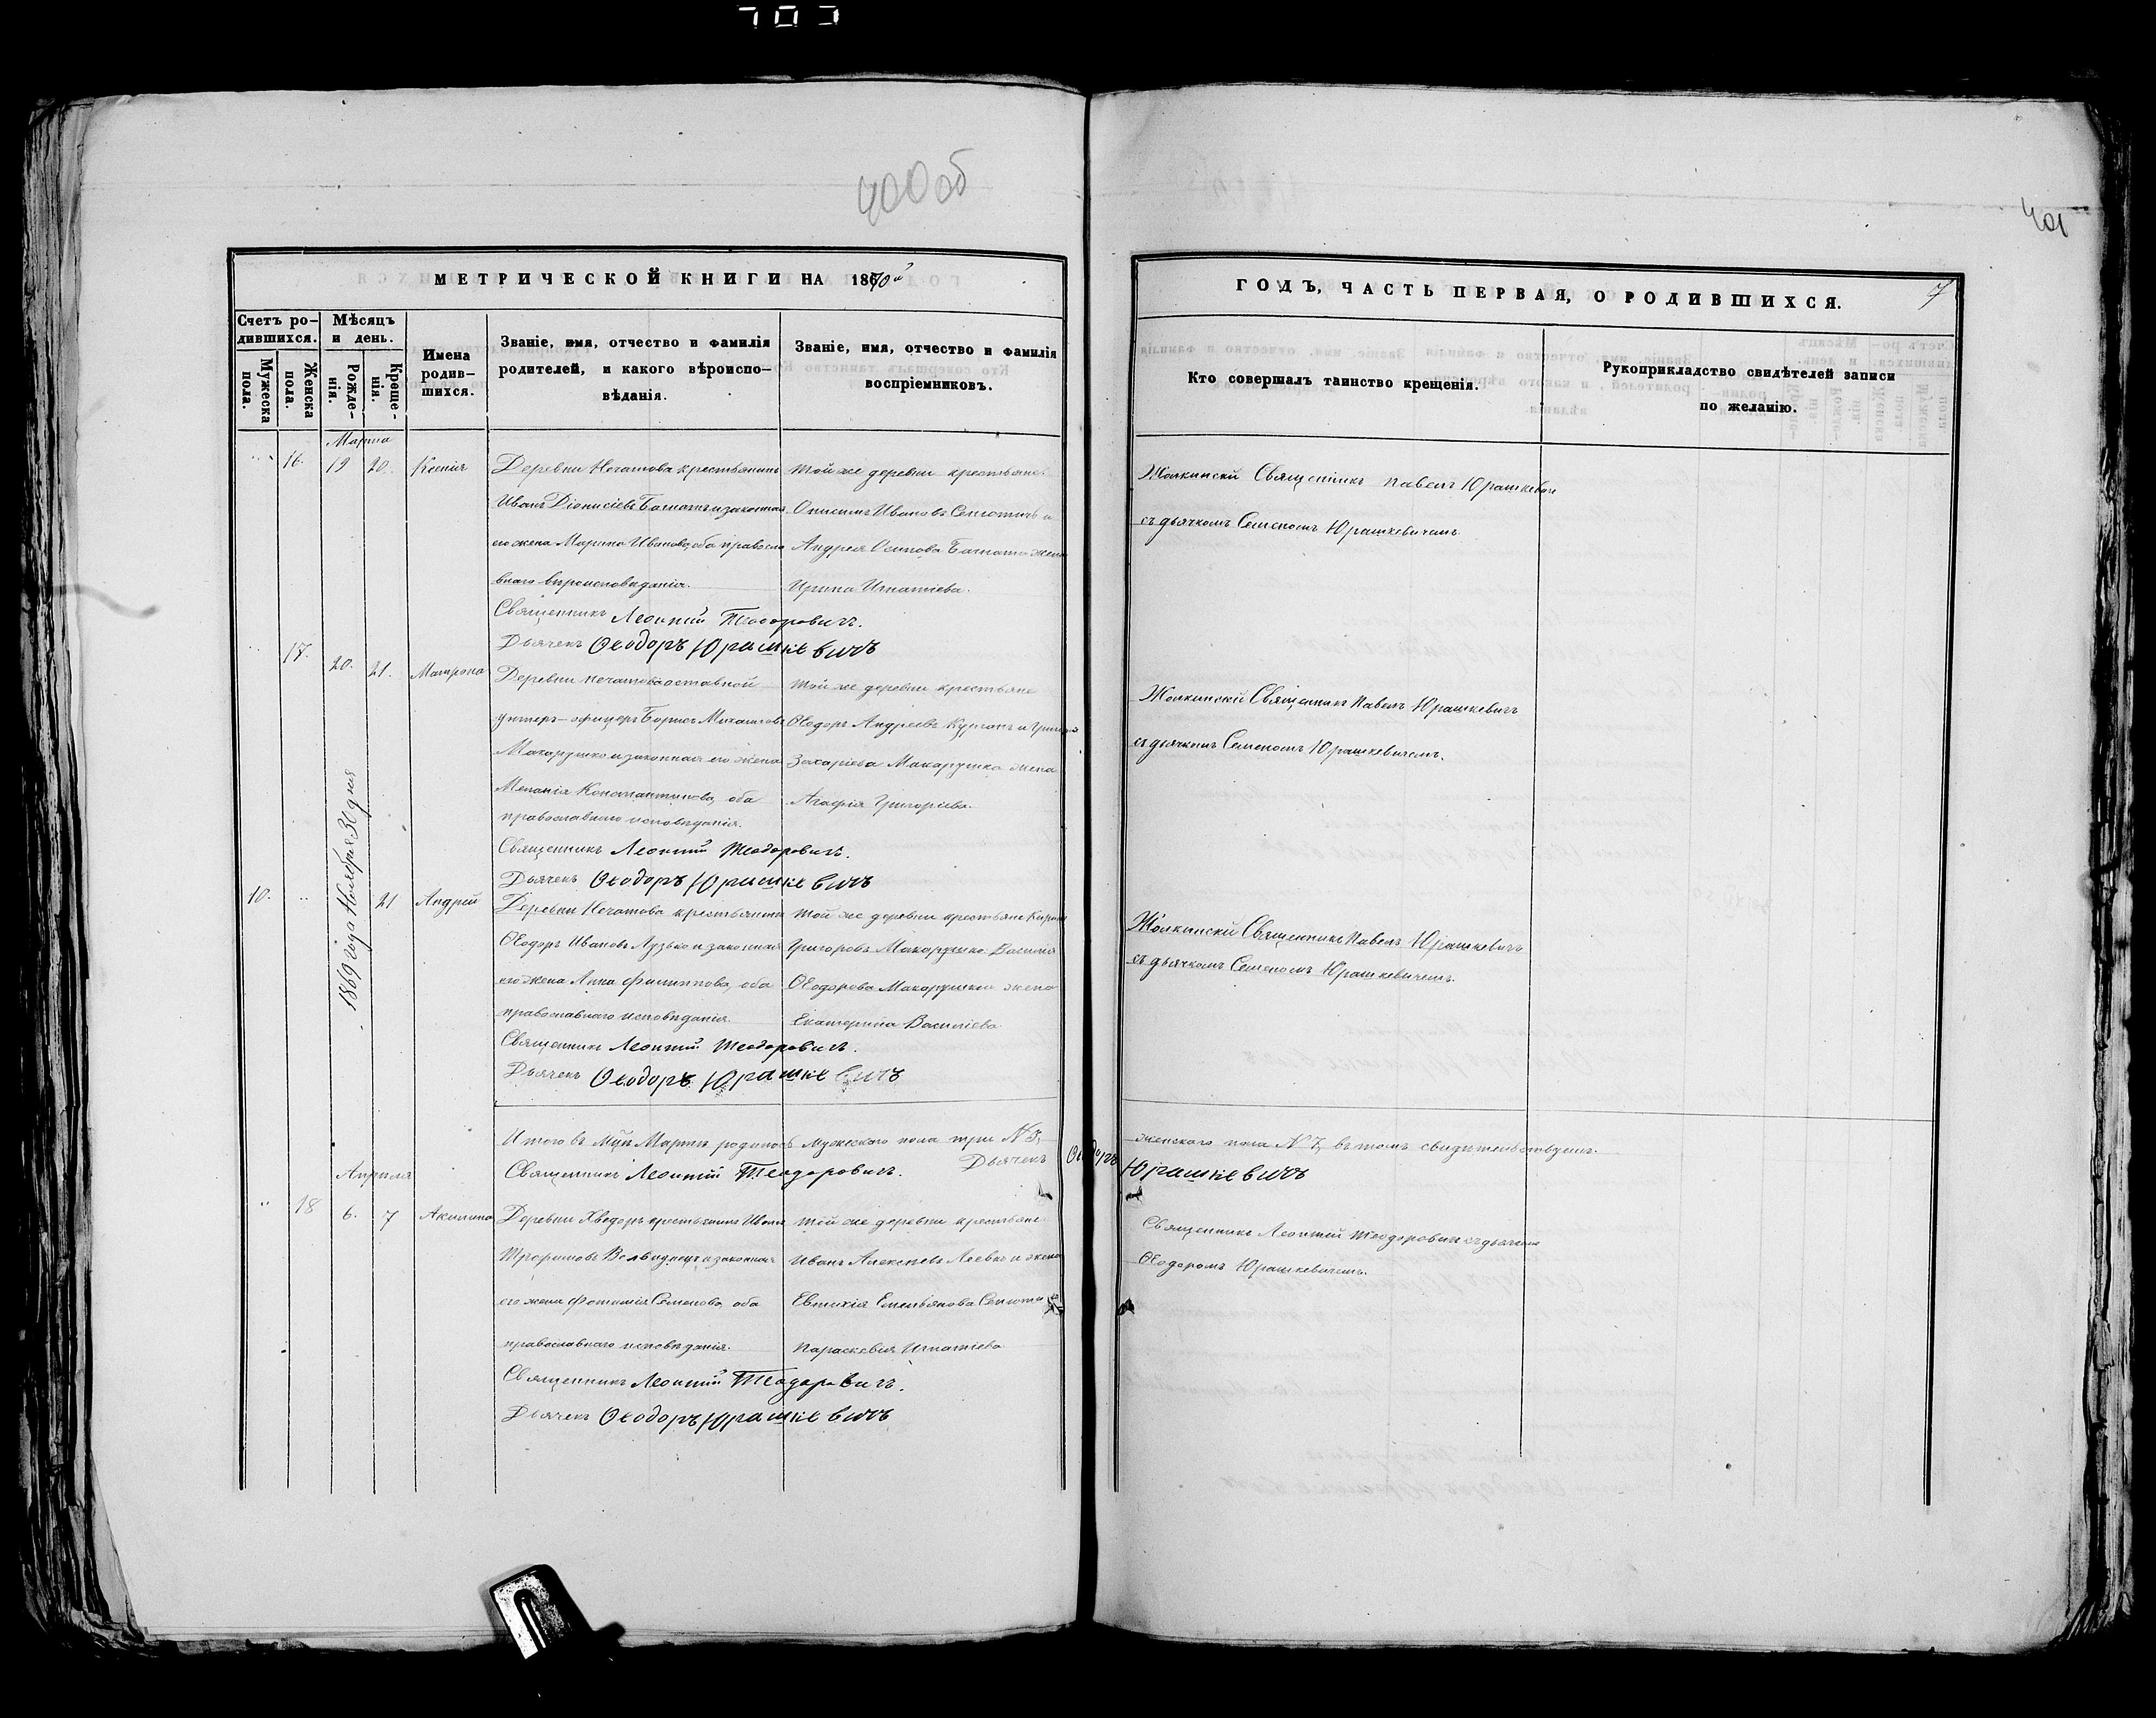 703
400 об
401
МЕТРИЧЕСКОЙ КНИГИ НА 1870й
ГОДЪ, ЧАСТЬ ПЕРВАЯ, О РОДИВШИХСЯ.
7
Счетъ ро-
дившихся.
Мужеска
пола.
Женска
пола.
Мѣсяцъ
и день.
Рожде-
нія.
Креще-
нія.
Имена
родив-
шихся.
Званіе, имя, отчество и фамилія
родителей, и какого вѣроиспо-
вѣданія.
Званіе, имя, отчество и фамилія
воспріемниковъ.
Кто совершалъ таинство крещенія.
Рукоприкладство свидѣтелей записи
по желанію.
Марта
16. 19 20. Ксенія
Деревни Нечатова крестьянинъ
Иванъ Діонисіевъ и законная
его жена Марина Иванова, оба правосла
внаго вѣроисповѣданія.
Священникъ Леонтій Теодоровичъ.
Дьячекъ Ѳеодоръ Юрашкевичъ
Той же деревни крестьяне
Онисимъ Ивановъ и
Андрея Осипова жена
Ирина Игнатіева.
Жолкинскій Священникъ Павелъ Юрашкевичъ
съ дьячкомъ Семеномъ Юрашкевичемъ.
17. 20. 21. Матрона
Деревни Нечатова отставной
унтеръ-офицеръ Борисъ Михайловъ
Макарушко и законная его жена
Меланія Константинова, оба
православнаго исповѣданія.
Священникъ Леонтій Теодоровичъ.
Дьячекъ Ѳеодоръ Юрашкевичъ
Той же деревни крестьяне
Ѳеодоръ Андреевъ и
Захаріева Макарушка жена
Агафія Григоріева.
Жолкинскій Священникъ Павелъ Юрашкевичъ
съ дьячкомъ Семеномъ Юрашкевичемъ.
10. 1869 года Ноября 30 дня 21 Андрей
Деревни Нечатова крестьянинъ
Ѳеодоръ Ивановъ Лузько и законная
его жена Анна Филиппова, оба
православнаго исповѣданія.
Священникъ Леонтій Теодоровичъ.
Дьячекъ Ѳеодоръ Юрашкевичъ
Той же деревни крестьяне
Григоровъ Макарушко Василія
Ѳеодорова Макарушки жена
Екатерина Василіева
Жолкинскій Священникъ Павелъ Юрашкевичъ
съ дьячкомъ Семеномъ Юрашкевичемъ.
Итого въ Мцѣ Мартѣ родилось мужескаго пола три № 3, женскаго пола № 7, въ томъ свидѣтельствуемъ.
Священникъ Леонтій Теодоровичъ. Дьячекъ Ѳеодоръ Юрашкевичъ
Апрѣля
18 6. 7 Акилина
Деревни Хведоръ крестьянинъ Иванъ
Трофимовъ и законная
его жена Фотинія Семенова, оба
православнаго исповѣданія.
Священникъ Леонтій Теодоровичъ.
Дьячекъ Ѳеодоръ Юрашкевичъ
Той же деревни крестьяне
Иванъ Алексѣевъ и жена
Евтихія Емельянова
Параскевія Игнатіева
Священникъ Леонтій Теодоровичъ съ дьячкомъ
Ѳеодоромъ Юрашкевичемъ.